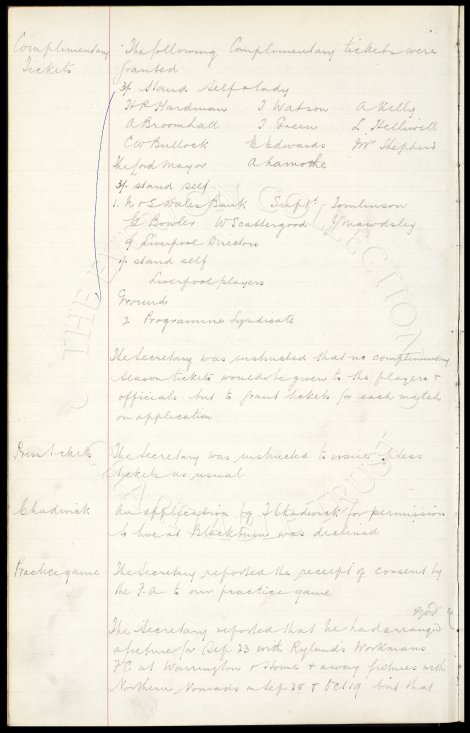 Complimentary The following Complimentary tickets were
Tickets granted
3/ Stand Self & lady
H R Hardman T Watson A Kelly
A Broomhall T Green L Helliwell
C W Bullock E Edwards Mr Shepherd
The Lord Mayor A Lamothe
3/ stand self
1. N & S Wales Bank Supt. Tomlinson
G Bowler W Scattergood J Mawdsley
9 Liverpool Directors
stand self
Liverpool players
Ground
2 Programme Syndicate
The Secretary was instructed that no complimentary
season tickets would be given to the players &
officials but to grant tickets for each match
on application
Press tickets The Secretary was instructed to issue press
tickets as usual
Chadwick An application by E Chadwick for permission
to live at Blackburn was declined
Practice game The Secretary reported the receipt of consent by
the F.A to our practice game
The Secretary reported that he had arranged
a fixture for Sep 23 with Rylands Workmans
FC at Warrington & home & away fixtures with
Northern Nomads on Sep 28 & Oct 19 but that
THE EVERTON COLLECTION
CHARITABLE TRUST